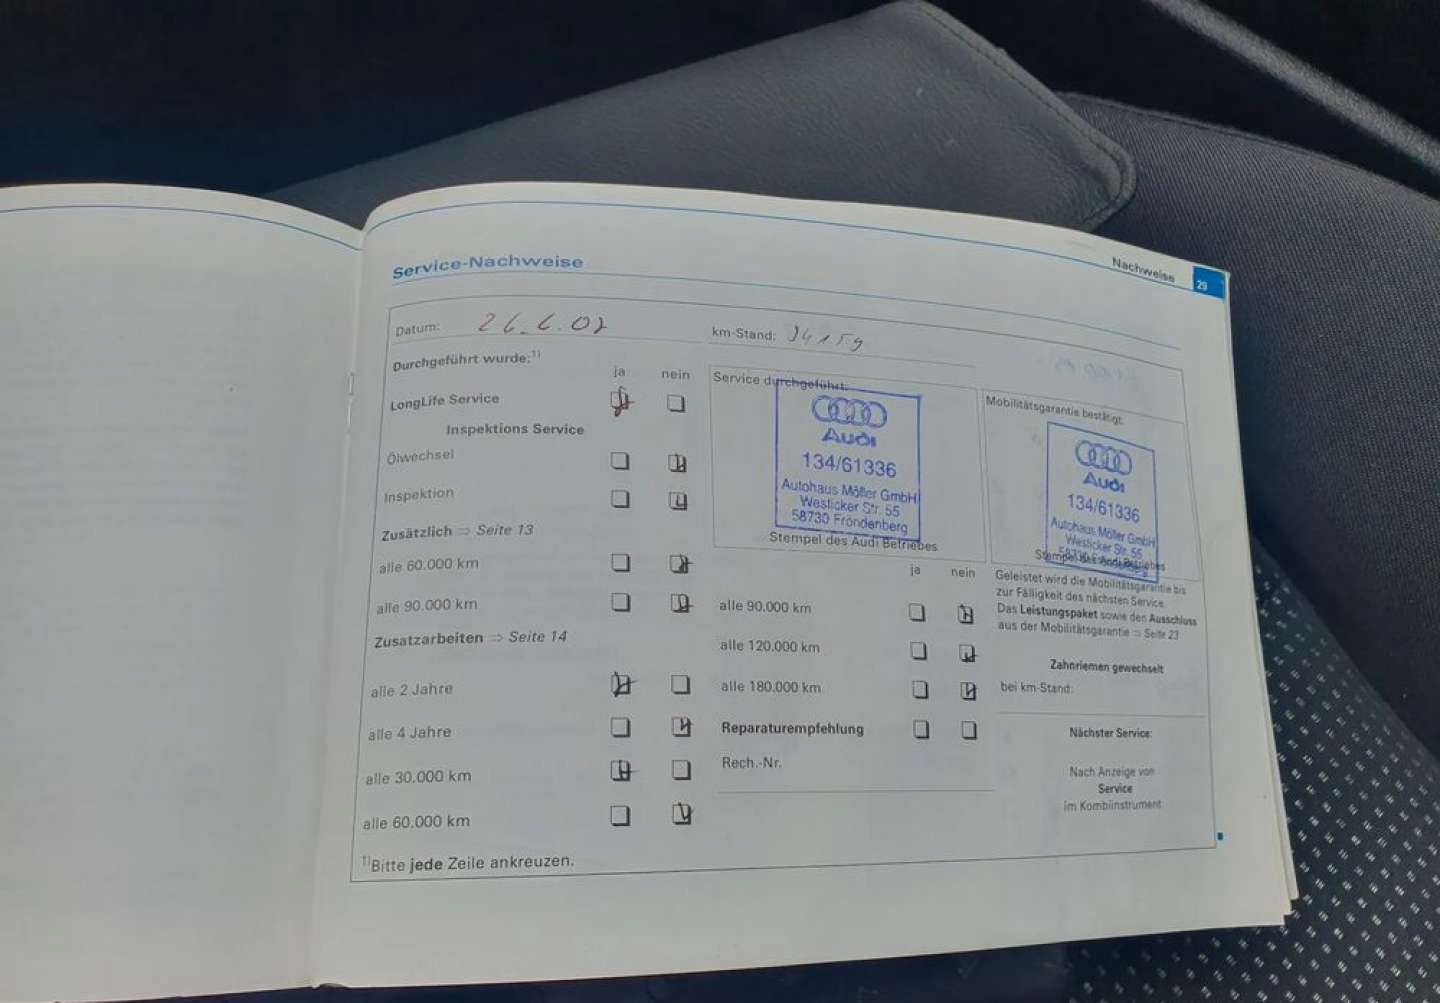 Nachweise 29
Service-Nachweise
Datum: km-Stand: 94159
Durchgeführt wurde:1)
ja nein
LongLife Service
Inspektions Service
Ölwechsel
Inspektion
Zusätzlich ⇒ Seite 13
alle 60.000 km
alle 90.000 km
Zusatzarbeiten ⇒ Seite 14
alle 2 Jahre
alle 4 Jahre
alle 30.000 km
alle 60.000 km
1)Bitte jede Zeile ankreuzen.
Service durchgeführt:
Audi
134/61336
Autohaus Möller GmbH
Westicker Str. 55
58730 Fröndenberg
Stempel des Audi Betriebes
ja nein
alle 90.000 km
alle 120.000 km
alle 180.000 km
Reparaturempfehlung
Rech.-Nr.
Mobilitätsgarantie bestätigt:
Audi
134/61336
Autohaus Möller GmbH
Westicker Str. 55
58730 Fröndenberg
Stempel des Audi Betriebes
Geleistet wird die Mobilitätsgarantie bis
zur Fälligkeit des nächsten Service.
Das Leistungspaket sowie den Ausschluss
aus der Mobilitätsgarantie ⇒ Seite 23
Zahnriemen gewechselt
bei km-Stand:
Nächster Service:
Nach Anzeige von
Service
im Kombiinstrument